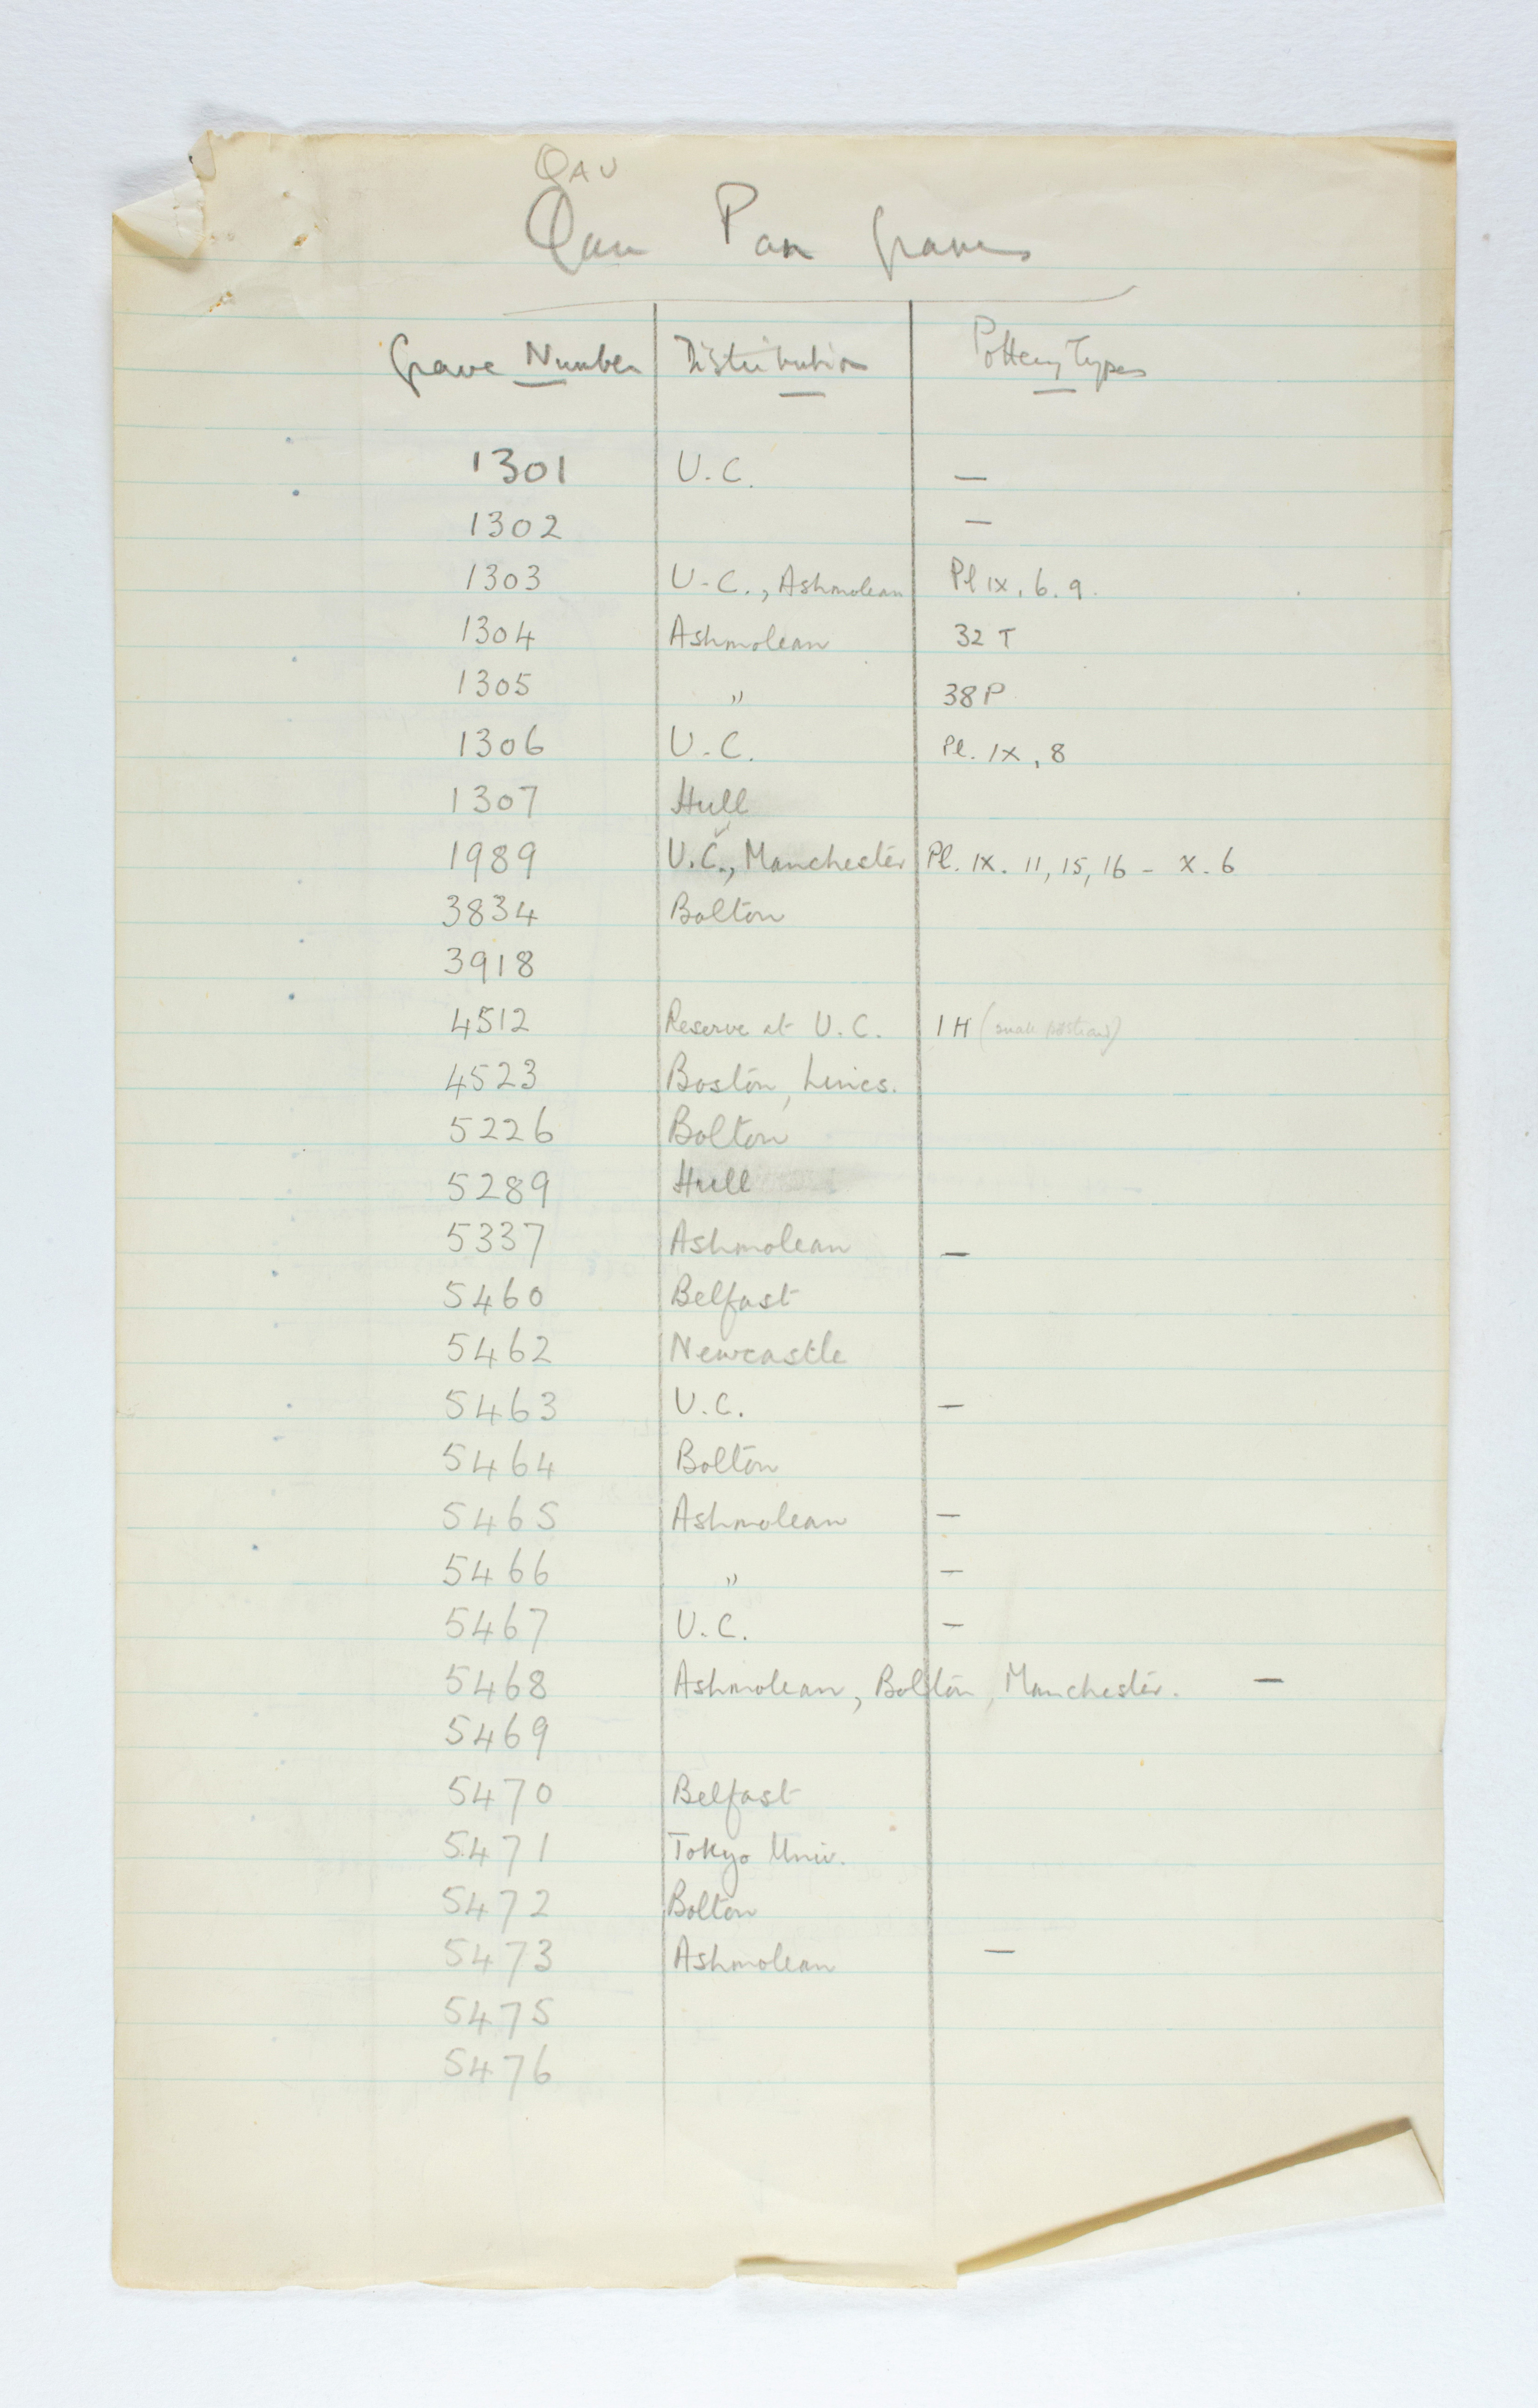 QAU
Qau Pan Graves
Grave Number Distribution Pottery Types
1301 U.C. —
1302 —
1303 U-C., Ashmolean Pl IX, 6. 9.
1304 Ashmolean 32 T
1305 " 38 P
1306 U-C. Pl. IX, 8
1307 Hull
1989 U.C., Manchester Pl. IX. 11, 15, 16 - X. 6
3834 Bolton
3918
4512 Reserve at U.C. 1 H (small
4523 Boston, Lincs.
5226 Bolton
5289 Hull
5337 Ashmolean —
5460 Belfast
5462 Newcastle
5463 U.C. —
5464 Bolton
5465 Ashmolean —
5466 " —
5467 U.C. —
5468 Ashmolean, Bolton, Manchester. —
5469
5470 Belfast
5471 Tokyo Univ.
5472 Bolton
5473 Ashmolean —
5475
5476